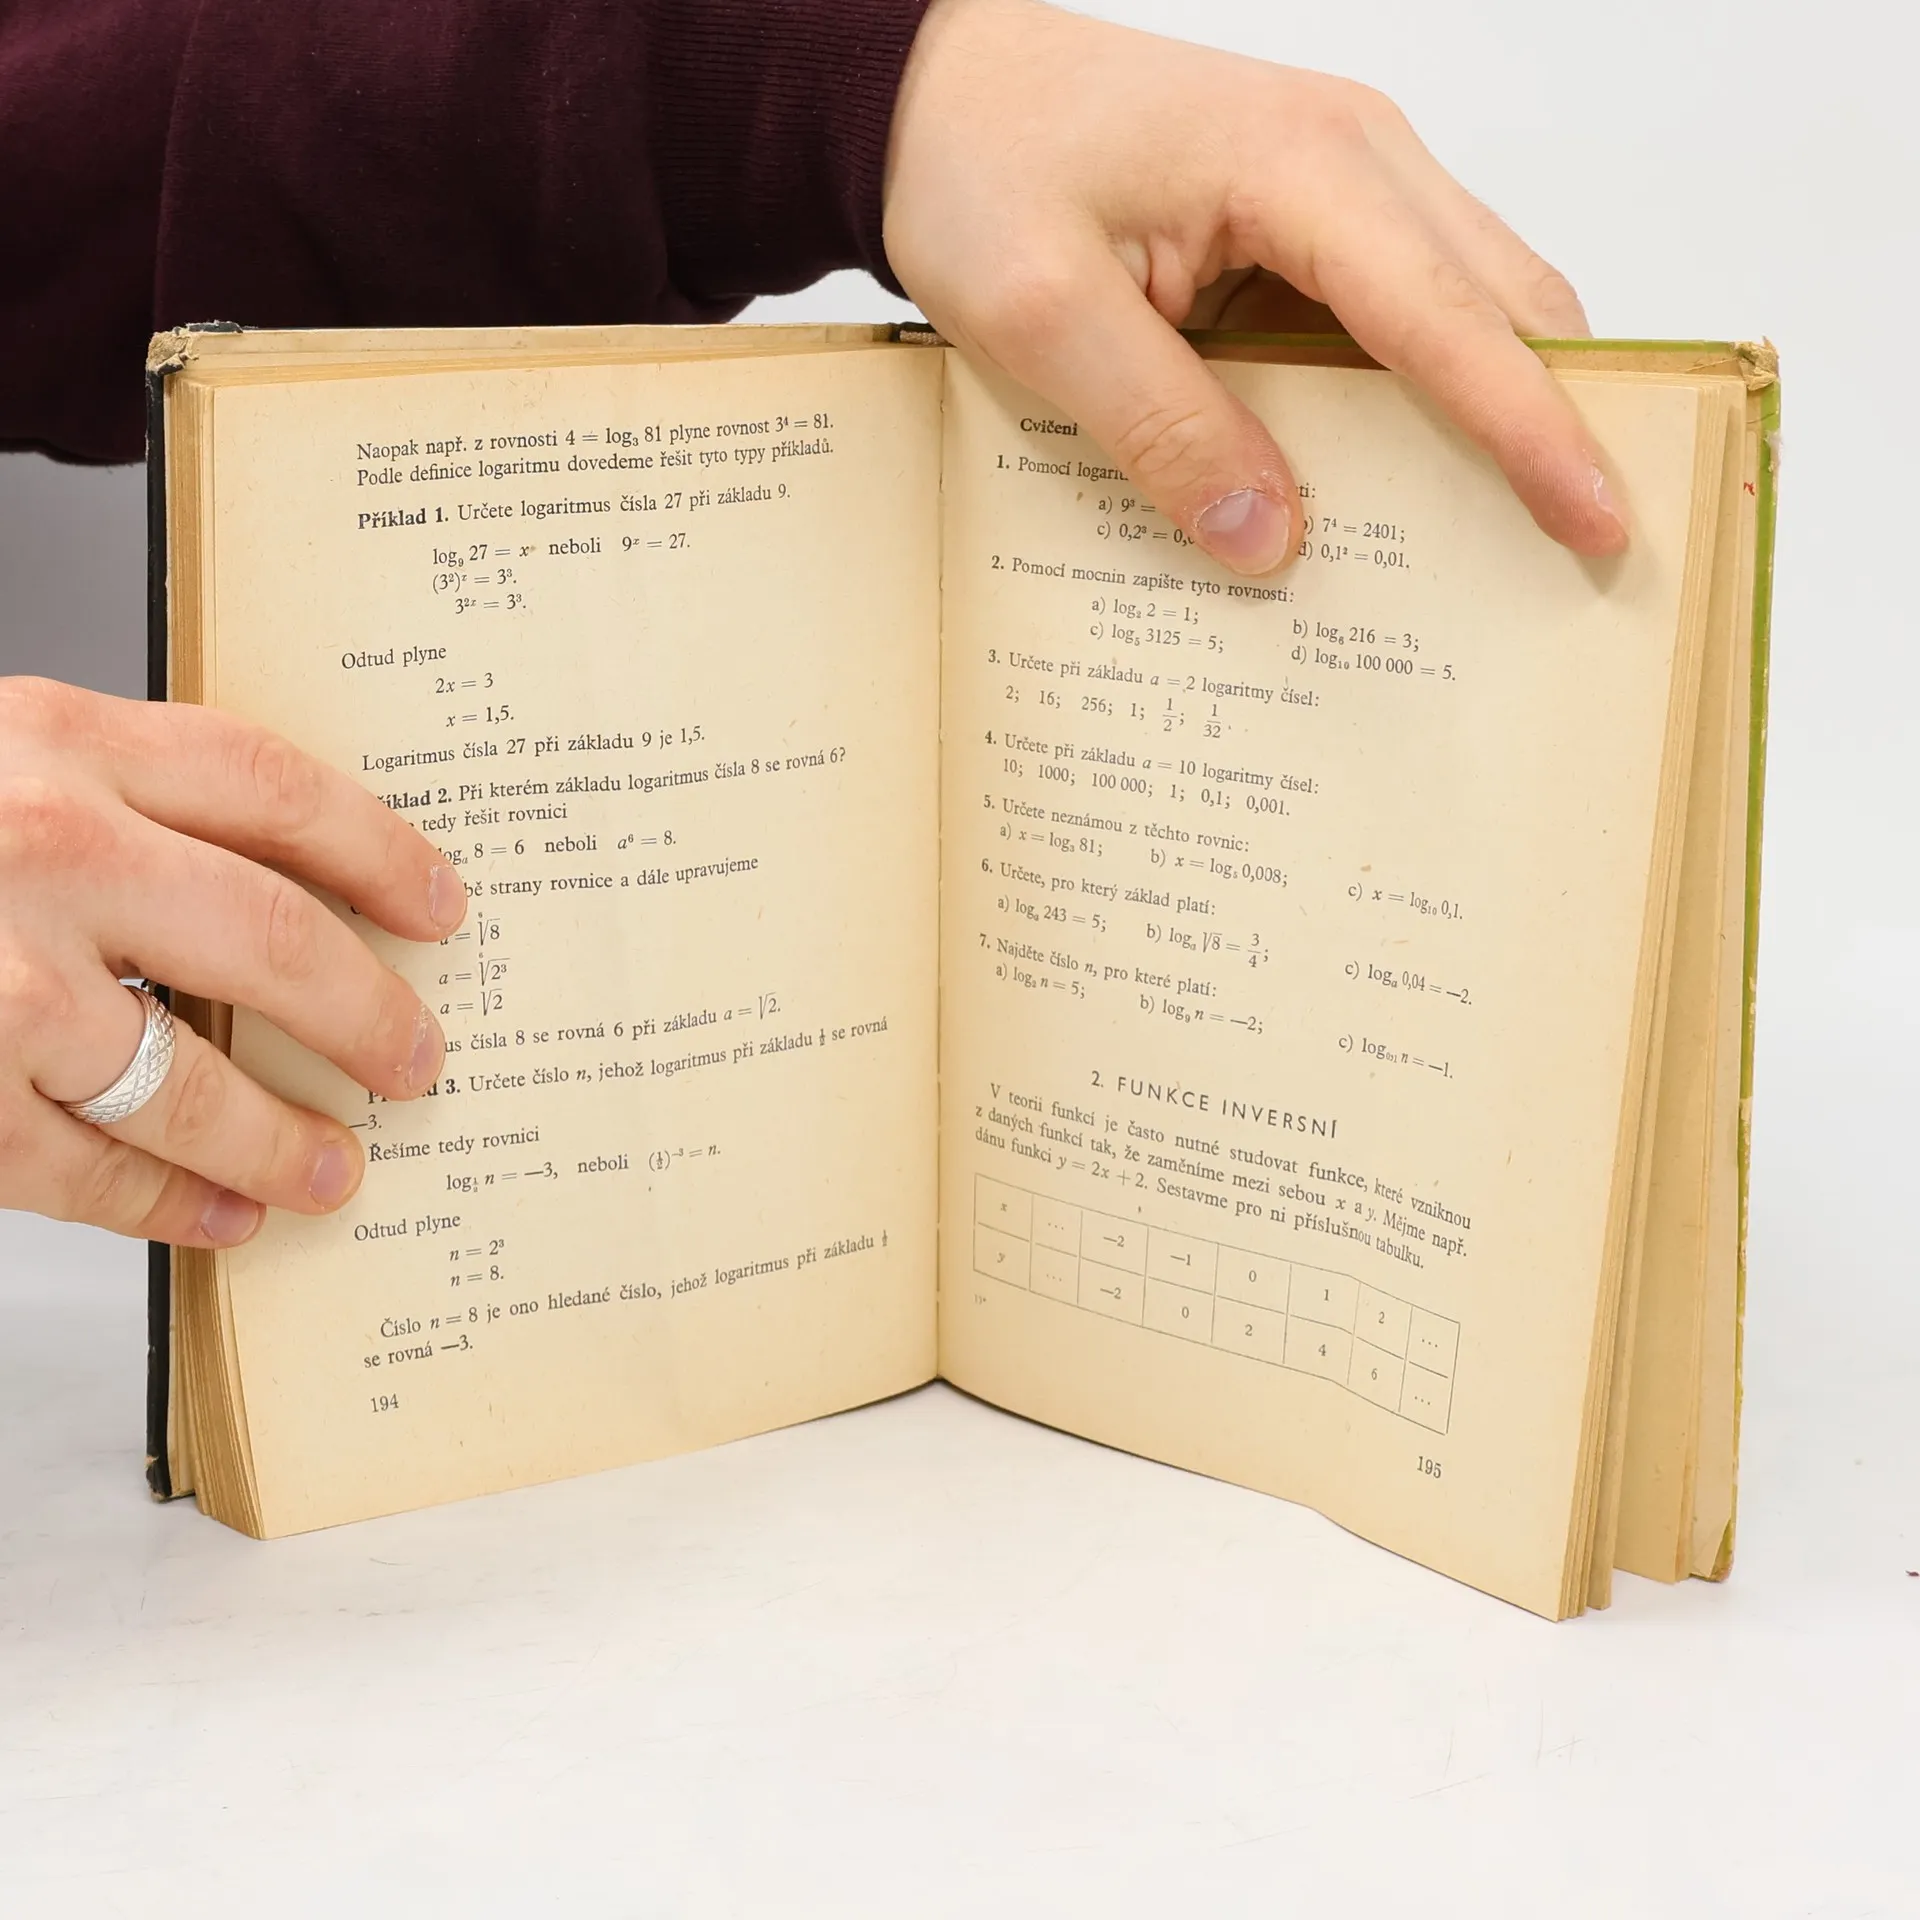 Naopak např. z rovnosti 4 = log₃ 81 plyne rovnost 3⁴ = 81.
Podle definice logaritmu dovedeme řešit tyto typy příkladů.
Příklad 1. Určete logaritmus čísla 27 při základu 9.
log₉ 27 = x neboli 9ˣ = 27.
(3²)ˣ = 3³.
3²ˣ = 3³.
Odtud plyne
2x = 3
x = 1,5.
Logaritmus čísla 27 při základu 9 je 1,5.
2. Při kterém základu logaritmus čísla 8 se rovná 6?
tedy řešit rovnici
8 = 6 neboli a⁶ = 8.
strany rovnice a dále upravujeme
= ⁶√8
a = ⁶√2³
a = √2
čísla 8 se rovná 6 při základu a = √2.
3. Určete číslo n, jehož logaritmus při základu ½ se rovná
—3.
Řešíme tedy rovnici
log½ n = —3, neboli (½)⁻³ = n.
Odtud plyne
n = 2³
n = 8.
Číslo n = 8 je ono hledané číslo, jehož logaritmus při základu ½
se rovná —3.
194
Cvičení
1. Pomocí
a) 9³ =
b) 7⁴ = 2401;
c) 0,2³ =
d) 0,1² = 0,01.
2. Pomocí mocnin zapište tyto rovnosti:
a) log₂ 2 = 1; b) log₆ 216 = 3;
c) log₅ 3125 = 5; d) log₁₀ 100 000 = 5.
3. Určete při základu a = 2 logaritmy čísel:
2; 16; 256; 1; 1/2; 1/32.
4. Určete při základu a = 10 logaritmy čísel:
10; 1000; 100 000; 1; 0,1; 0,001.
5. Určete neznámou z těchto rovnic:
a) x = log₃ 81; b) x = log₅ 0,008; c) x = log₁₀ 0,1.
6. Určete, pro který základ platí:
a) logₐ 243 = 5; b) logₐ √8 = 3/4; c) logₐ 0,04 = —2.
7. Najděte číslo n, pro které platí:
a) log₂ n = 5; b) log₉ n = —2; c) log₀,₀₁ n = —1.
2. FUNKCE INVERSNÍ
V teorii funkcí je často nutné studovat funkce, které vzniknou
z daných funkcí tak, že zaměníme mezi sebou x a y. Mějme např.
dánu funkci y = 2x + 2. Sestavme pro ni příslušnou tabulku.
x ... —2 —1 0 1 2 ...
y ... —2 0 2 4 6 ...
13*
195